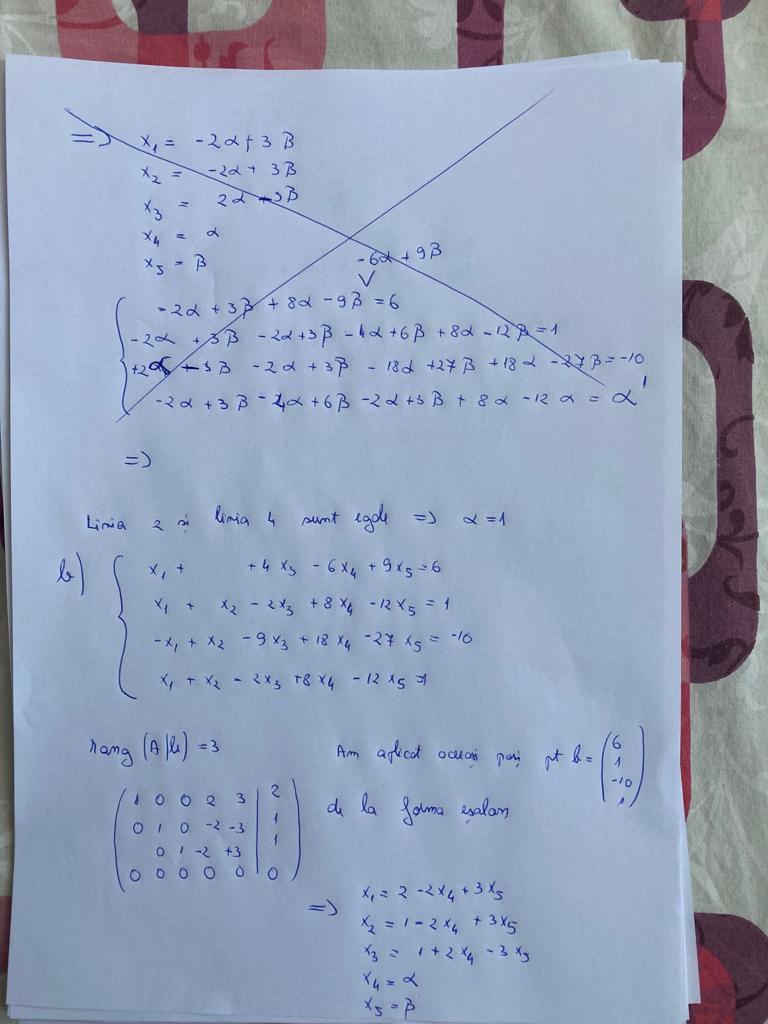 => x₁ = -2α + 3β
x₂ = -2α + 3β
x₃ = 2α - 3β
x₄ = α
x₅ = β
-6α + 9β
-2α + 3β + 8α - 9β = 6
-2α + 3β - 2α + 3β - 4α + 6β + 8α - 12β = 1
+2α - 3β - 2α + 3β - 18α + 27β + 18α - 27β = -10
-2α + 3β - 4α + 6β - 2α + 3β + 8α - 12α = α
=>
Linia 2 și linia 4 sunt egale => α = 1
b) x₁ + + 4x₃ - 6x₄ + 9x₅ = 6
x₁ + x₂ - 2x₃ + 8x₄ - 12x₅ = 1
-x₁ + x₂ - 9x₃ + 18x₄ - 27x₅ = -10
x₁ + x₂ - 2x₃ + 8x₄ - 12x₅ = 1
rang (A|b) = 3
Am aplicat aceeași pași pt b = (6 1 -10 1)
de la forma eșalon
1 0 0 2 3 | 2
0 1 0 -2 -3 | 1
0 1 -2 +3 | 1
0 0 0 0 0 | 0
=> x₁ = 2 - 2x₄ + 3x₅
x₂ = 1 - 2x₄ + 3x₅
x₃ = 1 + 2x₄ - 3x₅
x₄ = α
x₅ = β